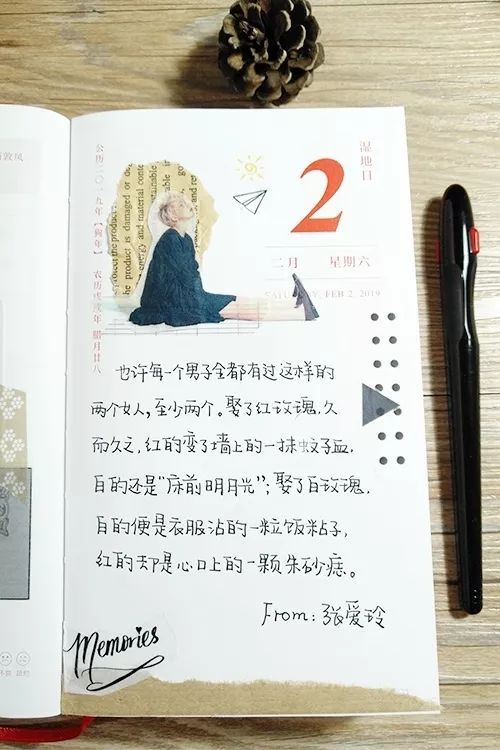 湿地日
2
二月 星期六
SATURDAY, FEB 2, 2019
公历二〇一九年【狗年】 农历戊戌年 腊月廿八
也许每一个男子全都有过这样的
两个女人,至少两个。娶了红玫瑰,久
而久之,红的变了墙上的一抹蚊子血,
白的还是“床前明月光”;娶了白玫瑰,
白的便是衣服沾的一粒饭粘子,
红的却是心口上的一颗朱砂痣。
From: 张爱玲
Memories